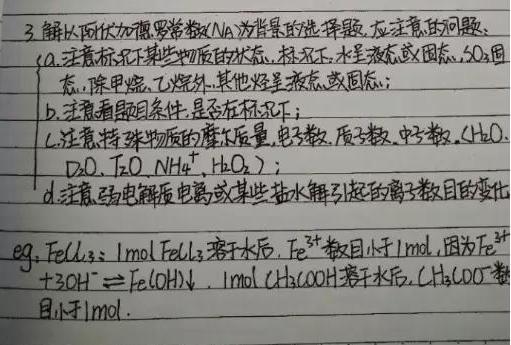 3. 解以阿伏加德罗常数(NA)为背景的选择题,应注意的问题:
a. 注意标况下某些物质的状态,标况下,水呈液态或固态,SO₃固
态,除甲烷、乙烷外,其他烃呈液态或固态;
b. 注意看题目条件,是否在标况下;
c. 注意特殊物质的摩尔质量,电子数、质子数、中子数。(H₂O、
D₂O、T₂O、NH₄⁺、H₂O₂);
d. 注意弱电解质电离或某些盐水解引起的离子数目的变化
eg: FeCl₃: 1mol FeCl₃溶于水后,Fe³⁺数目小于1mol,因为Fe³⁺
+3OH⁻⇌Fe(OH)↓. 1mol CH₃COOH溶于水后,CH₃COO⁻数
目小于1mol.